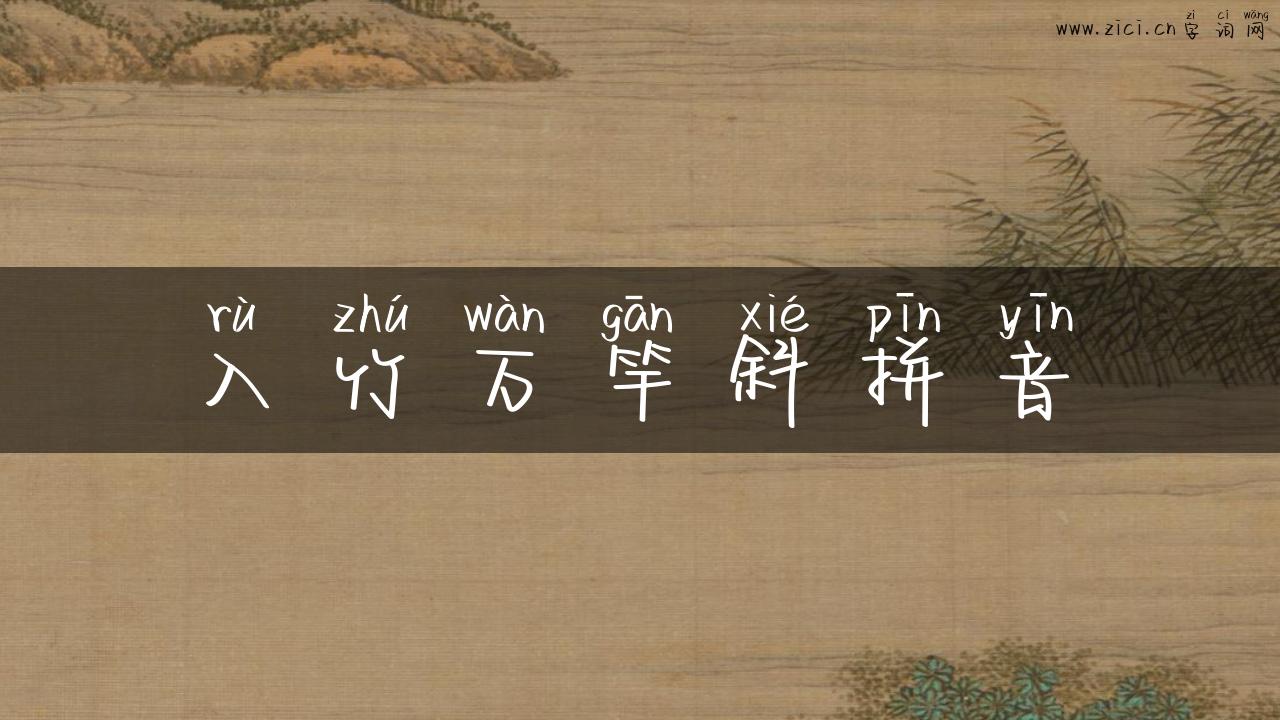 zì cí wǎng
www.zici.cn 字词网
rù zhú wàn gān xié pīn yīn
入竹万竿斜拼音